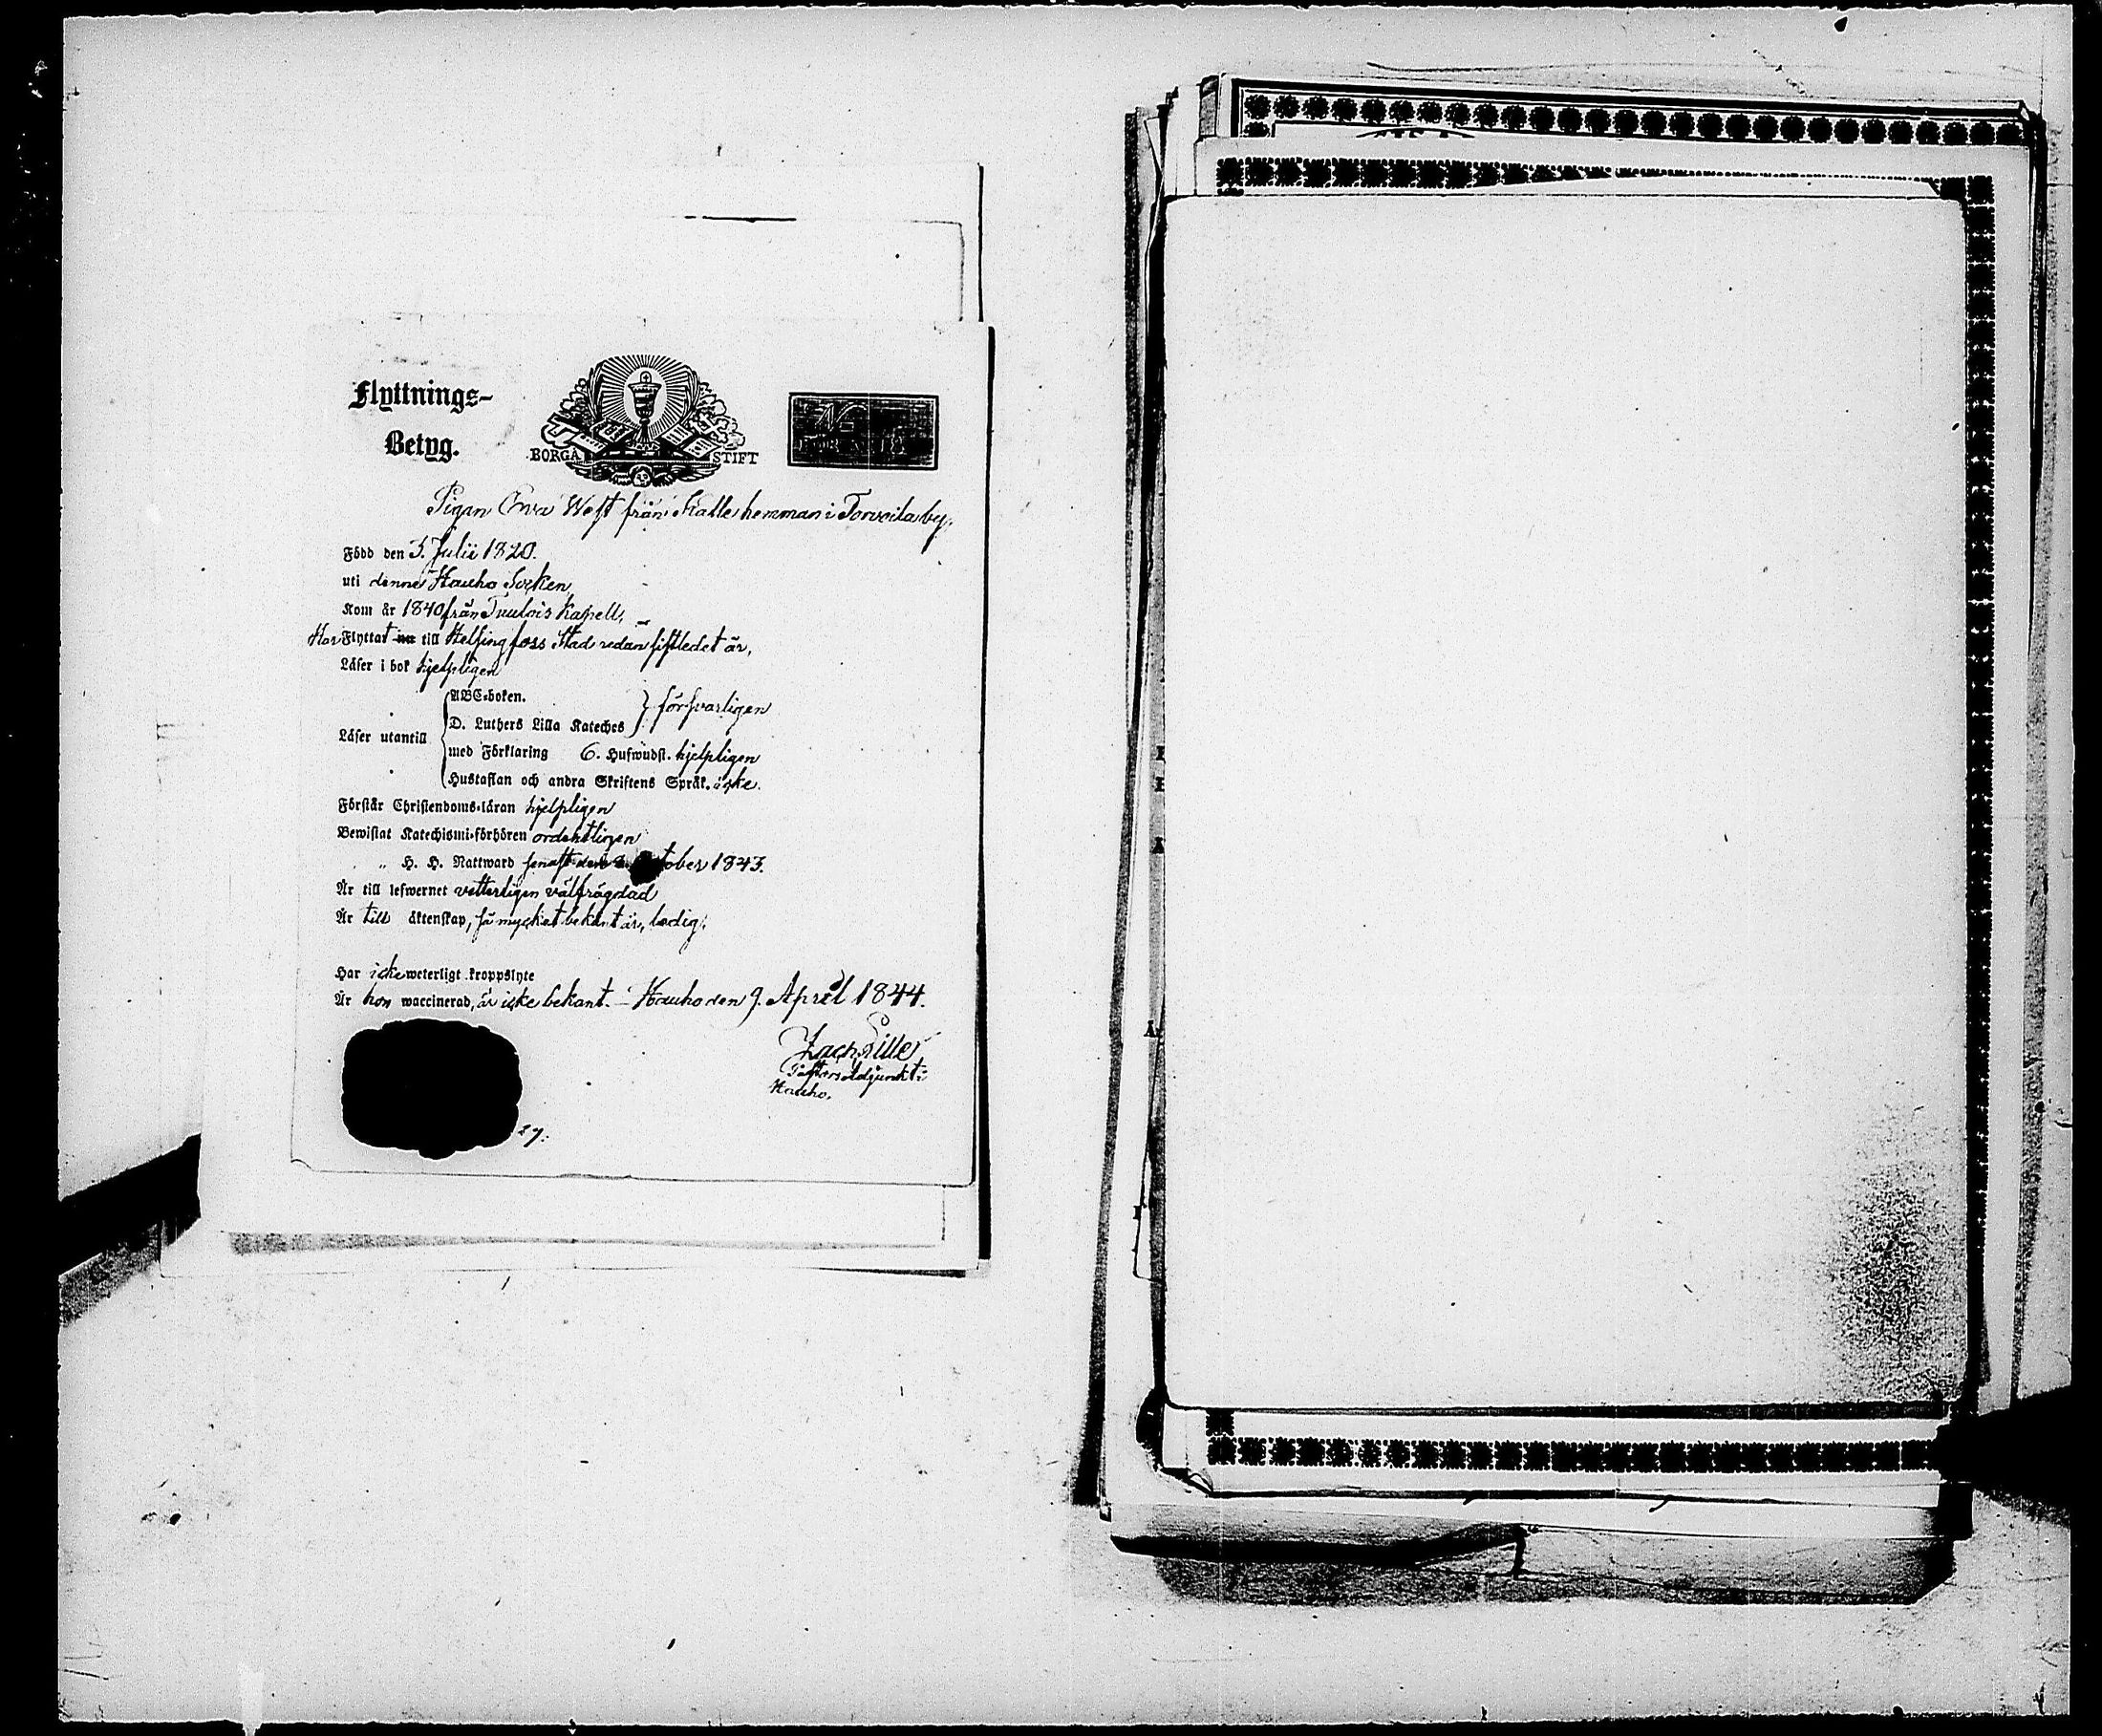 Flyttnings-
Betyg.
BORGÅ STIFT
Pigan Ewa West från Kalle hemman i Torvoila by.
Född den 3. Julii 1820.
uti denna Hauho Socken,
Kom år 1840 från Tuulois Kapell,
Har Flyttat till Helsingfors Stad redan sistledet år,
Läser i bok hjelpligen
ABC-boken.
D. Luthers Lilla Kateches } försvarligen
Läser utantill
med Förklaring 6. Hufwudst. hjelpligen
Hustaflan och andra Skriftens Språk. icke.
Förstår Christendoms-läran hjelpligen
Bewistat Katechismi-förhören ordentligen
„ H. H. Nattward senast den tober 1843.
Är till lefwernet vetterligen välfrägdad
Är till äktenskap, så mycket bekant är, ledig.
Har icke weterligt kroppslyte
Är hon waccinerad, är icke bekant. — Hauho den 9. April 1844.
Zach Lille
Pastors Adjunkt i
Hauho.
27.